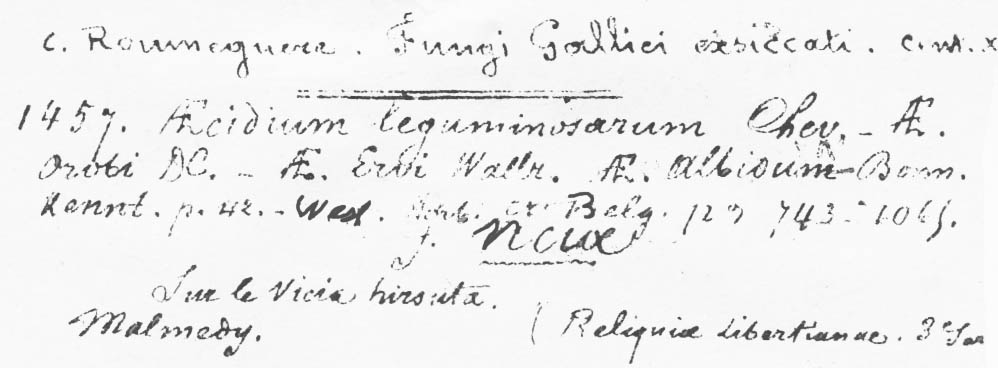 C. Roumeguere. Fungi Gallici exsiccati. Cent. X
1457. Æcidium leguminosarum Chev. - Æ.
Orobi DC. - Æ. Ervi Wallr. Æ. Albidum - Bonn.
Kennt. p. 42. - West. Herb. cr. Belg. no 743 - 1065.
f. Viciæ
Sur le Vicia hirsuta.
Malmedy.
(Reliquiæ Libertianae. 3e Ser